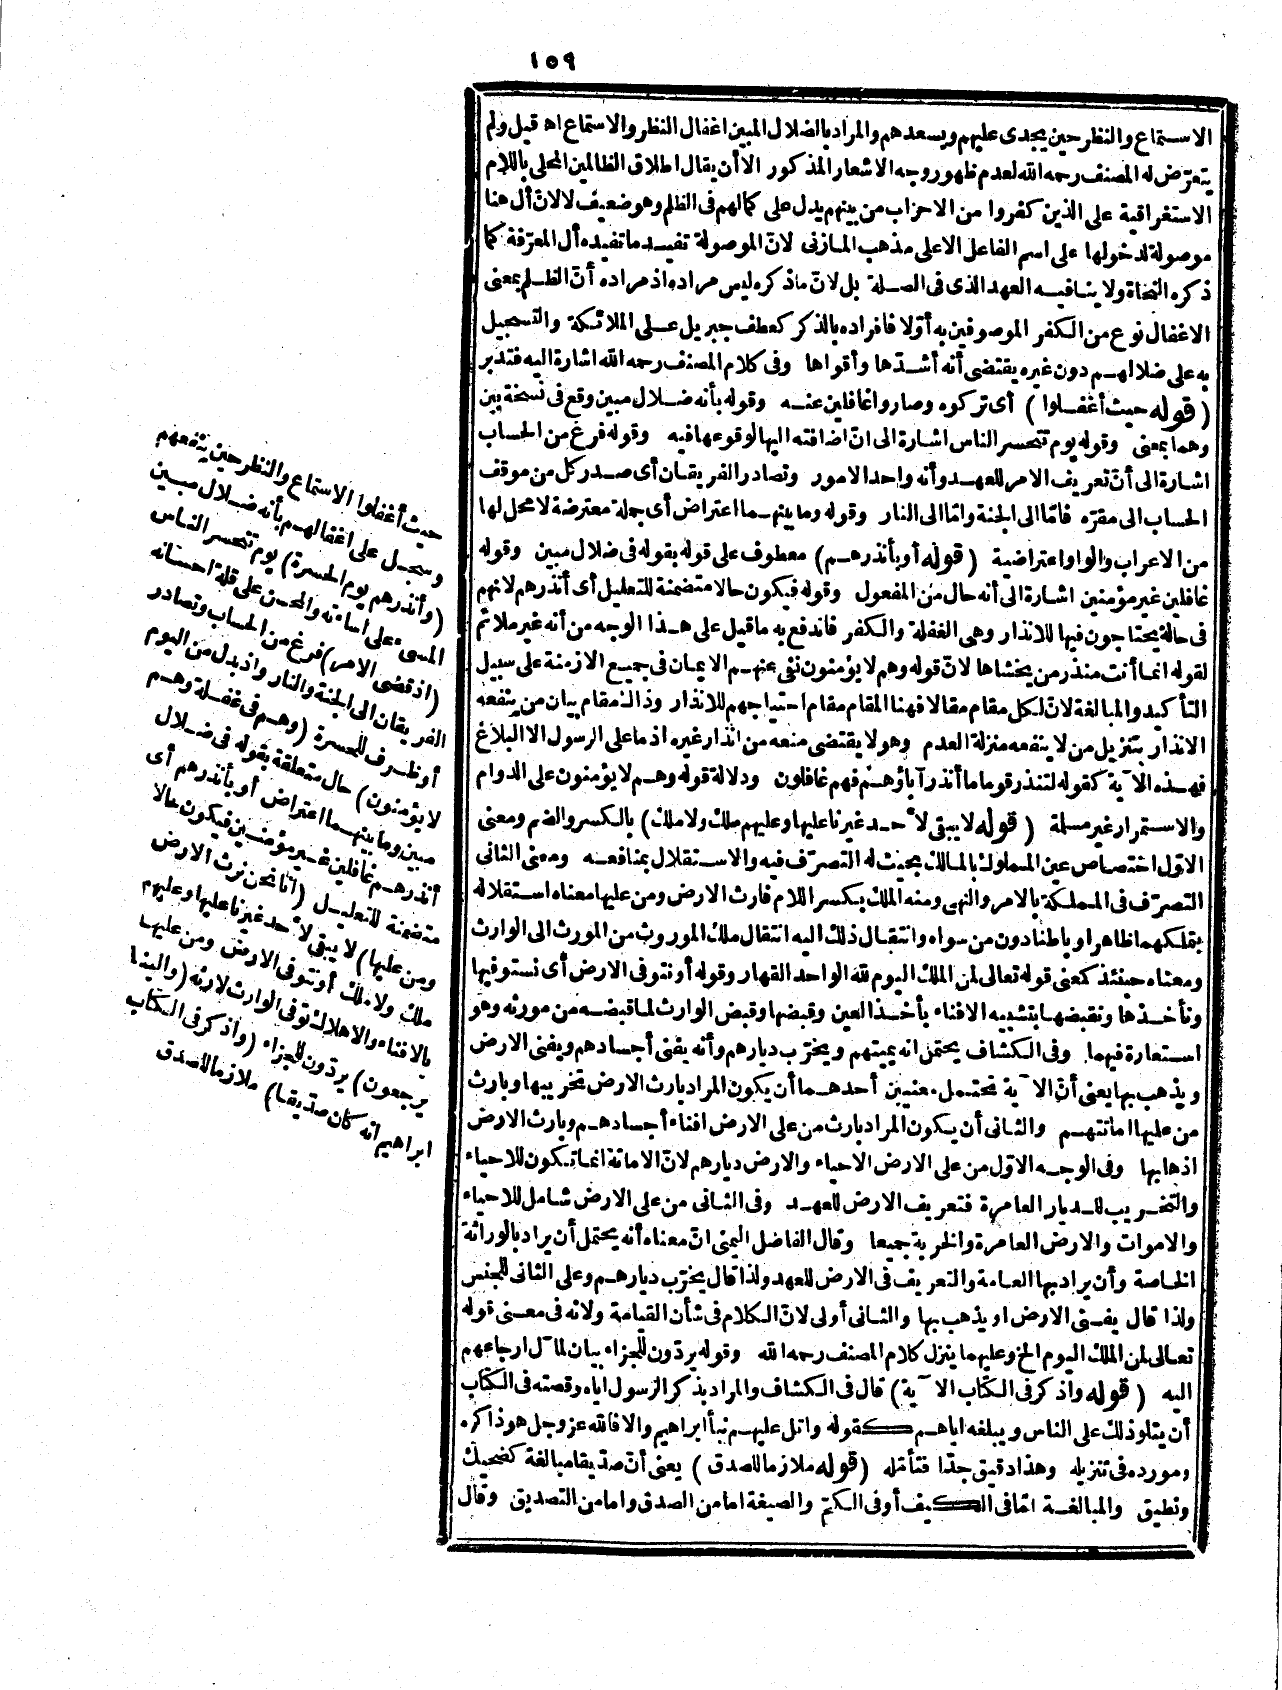 ١٥٩
الاستماع والنظر حين يجدى عليهم ويسعدهم والمراد بالضلال المبين اغفال النظر والاستماع اه قيل ولم
يتعرّض له المصنف رحمه الله لعدم ظهور وجه الاشعار المذكور الا أن يقال اطلاق الظالمين المحلى باللام
الاستغراقية على الذين كفروا من الاحزاب من بينهم يدل على كمالهم فى الظلم وهو ضعيف لا لانّ أل هنا
موصولة لدخولها على اسم الفاعل الاعلى مذهب المازنى لانّ الموصولة تفيد ما تفيده أل المعرّفة كما
ذكره النحاة ولا ينافيه العهد الذى فى الصلة بل لانّ ماذكره ليس مراده اذ مراده أنّ الظلم بمعنى
الاغفال نوع من الكفر الموصوفين به أوّلا فافراده بالذكر كعطف جبريل على الملائكة والتسجيل
به على ضلالهم دون غيره يقتضى أنه أشدّها وأقواها وفى كلام المصنف رحمه الله اشارة اليه فتدبر
(قوله حيث أغفلوا) أى تركوه وصاروا غافلين عنه وقوله بأنه ضلال مبين وقع فى نسخة بين
وهما بمعنى وقوله يوم تتحسر الناس اشارة الى انّ اضافته اليها لوقوعها فيه وقوله فرغ من الحساب
اشارة الى أنّ تعريف الامر للعهد وأنه واحد الامور وتصادر الفريقان أى صدر كل من موقف
الحساب الى مقرّه فامّا الى الجنة وامّا الى النار وقوله وما بينهما اعتراض أى جملة معترضة لا محل لها
من الاعراب والواو اعتراضية (قوله أو بأنذرهم) معطوف على قوله بقوله فى ضلال مبين وقوله
غافلين غير مؤمنين اشارة الى أنه حال من المفعول وقوله فيكون حالا متضمنة للتعليل أى أنذرهم لانهم
فى حالة يحتاجون فيها للانذار وهى الغفلة والكفر فاندفع به ما قيل على هذا الوجه من أنه غير ملائم
لقوله انما أنت منذر من يخشاها لانّ قوله وهم لا يؤمنون نفى عنهم الايمان فى جميع الازمنة على سبيل
التأكيد والمبالغة لانّ لكل مقام مقالا فهنا المقام مقام احتياجهم للانذار وذاك مقام بيان من ينفعه
الانذار بتنزيل من لا ينفعه منزلة العدم وهو لا يقتضى منعه من انذار غيره اذ ما على الرسول الا البلاغ
فهذه الآية كقوله لتنذر قوما ما أنذر آباؤهم فهم غافلون ودلالة قوله وهم لا يؤمنون على الدوام
والاستمرار غير مسلمة (قوله لا يبقى لاحد غيرنا عليها وعليهم ملك ولا ملك) بالكسر والضم ومعنى
الاوّل اختصاص عين المملوك بالمالك بحيث له التصرّف فيه والاستقلال بمنافعه ومعنى الثانى
التصرّف فى المملكة بالامر والنهى ومنه الملك بكسر اللام فارث الارض ومن عليها معناه استقلاله
بتملكهما ظاهرا وباطنا دون من سواه وانتقال ذلك اليه انتقال ملك الموروث من المورث الى الوارث
ومعناه حينئذ كمعنى قوله تعالى لمن الملك اليوم لله الواحد القهار وقوله أو نتوفى الارض أى نستوفيها
ونأخذها ونقبضها بتشبيه الافناء بأخذ العين وقبضها وقبض الوارث لما قبضه من مورثه وهو
استعارة فيهما وفى الكشاف يحتمل انه يميتهم ويخرّب ديارهم وأنه يفنى أجسادهم ويفنى الارض
ويذهب بها يعنى أنّ الآية تحتمل معنيين أحدهما أن يكون المراد بارث الارض تخريبها وبارث
من عليها اماتتهم والثانى أن يكون المراد بارث من على الارض افناء أجسادهم وبارث الارض
اذهابها وفى الوجه الاوّل من على الارض الاحياء والارض ديارهم لانّ الاماتة انما تكون للاحياء
والتخريب للديار العامرة فتعريف الارض للعهد وفى الثانى من على الارض شامل للاحياء
والاموات والارض العامرة والخربة جميعا وقال الفاضل اليمنى انّ معناه أنه يحتمل أن يراد بالوراثة
الخاصة وأن يراد بها العامة والتعريف فى الارض للعهد ولذا قال يخرّب ديارهم وعلى الثانى للجنس
ولذا قال يفنى الارض او يذهب بها والثانى أولى لانّ الكلام فى شأن القيامة ولانه فى معنى قوله
تعالى لمن الملك اليوم الخ وعليهما ينزل كلام المصنف رحمه الله وقوله يردّون للجزاء بيان لمآل ارجاعهم
اليه (قوله واذكر فى الكتاب الآية) قال فى الكشاف والمراد بذكر الرسول اياه وقصته فى الكتاب
أن يتلو ذلك على الناس ويبلغه اياهم كقوله واتل عليهم نبأ ابراهيم والا فالله عز وجل هو ذاكره
ومورده فى تنزيله وهذا دقيق جدّا فتأمّله (قوله ملازما للصدق) يعنى أنّ صدّيقا مبالغة كضحيك
ونطيق والمبالغة امّا فى الكيف أو فى الكمّ والصيغة اما من الصدق واما من التصديق وقال
حيث أغفلوا الاستماع والنظر حين ينفعهم
وسجل على اغفالهم بأنه ضلال مبين
(وأنذرهم يوم الحسرة) يوم تتحسر الناس
المسىء على اساءته والمحسن على قلة احسانه
(اذ قضى الامر) فرغ من الحساب وتصادر
الفريقان الى الجنة والنار واذ بدل من اليوم
أو ظرف للحسرة (وهم فى غفلة وهم
لا يؤمنون) حال متعلقة بقوله فى ضلال
مبين وما بينهما اعتراض أو بأنذرهم أى
أنذرهم غافلين غير مؤمنين فيكون حالا
متضمنة للتعليل (انا نحن نرث الارض
ومن عليها) لا يبقى لاحد غيرنا عليها وعليهم
ملك ولا ملك أو نتوفى الارض ومن عليها
بالافناء والاهلاك توفى الوارث لارثه (والينا
يرجعون) يردّون للجزاء (واذكر فى الكتاب
ابراهيم انه كان صدّيقا) ملازما للصدق